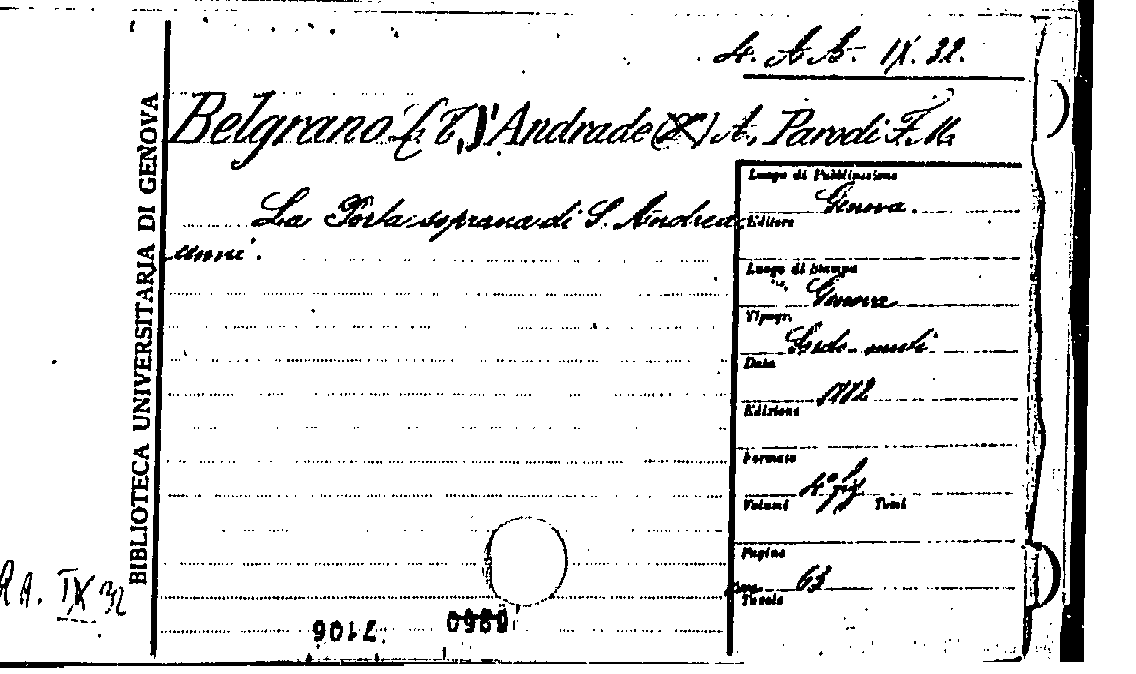 4. A A. IX. 32.
BIBLIOTECA UNIVERSITARIA DI GENOVA
Belgrano (L. T.) Andrade (X) A. Parodi F. M.
La Porta soprana di S. Andrea
Luogo di Pubblicazione
Genova.
Editore
Luogo di Stampa
Genova
Tipogr.
Sordo-muti
Data
1882
Edizione
Formato
4º fig
Volumi Tomi
Pagine
63
Tavole
A A. IX 32
7106